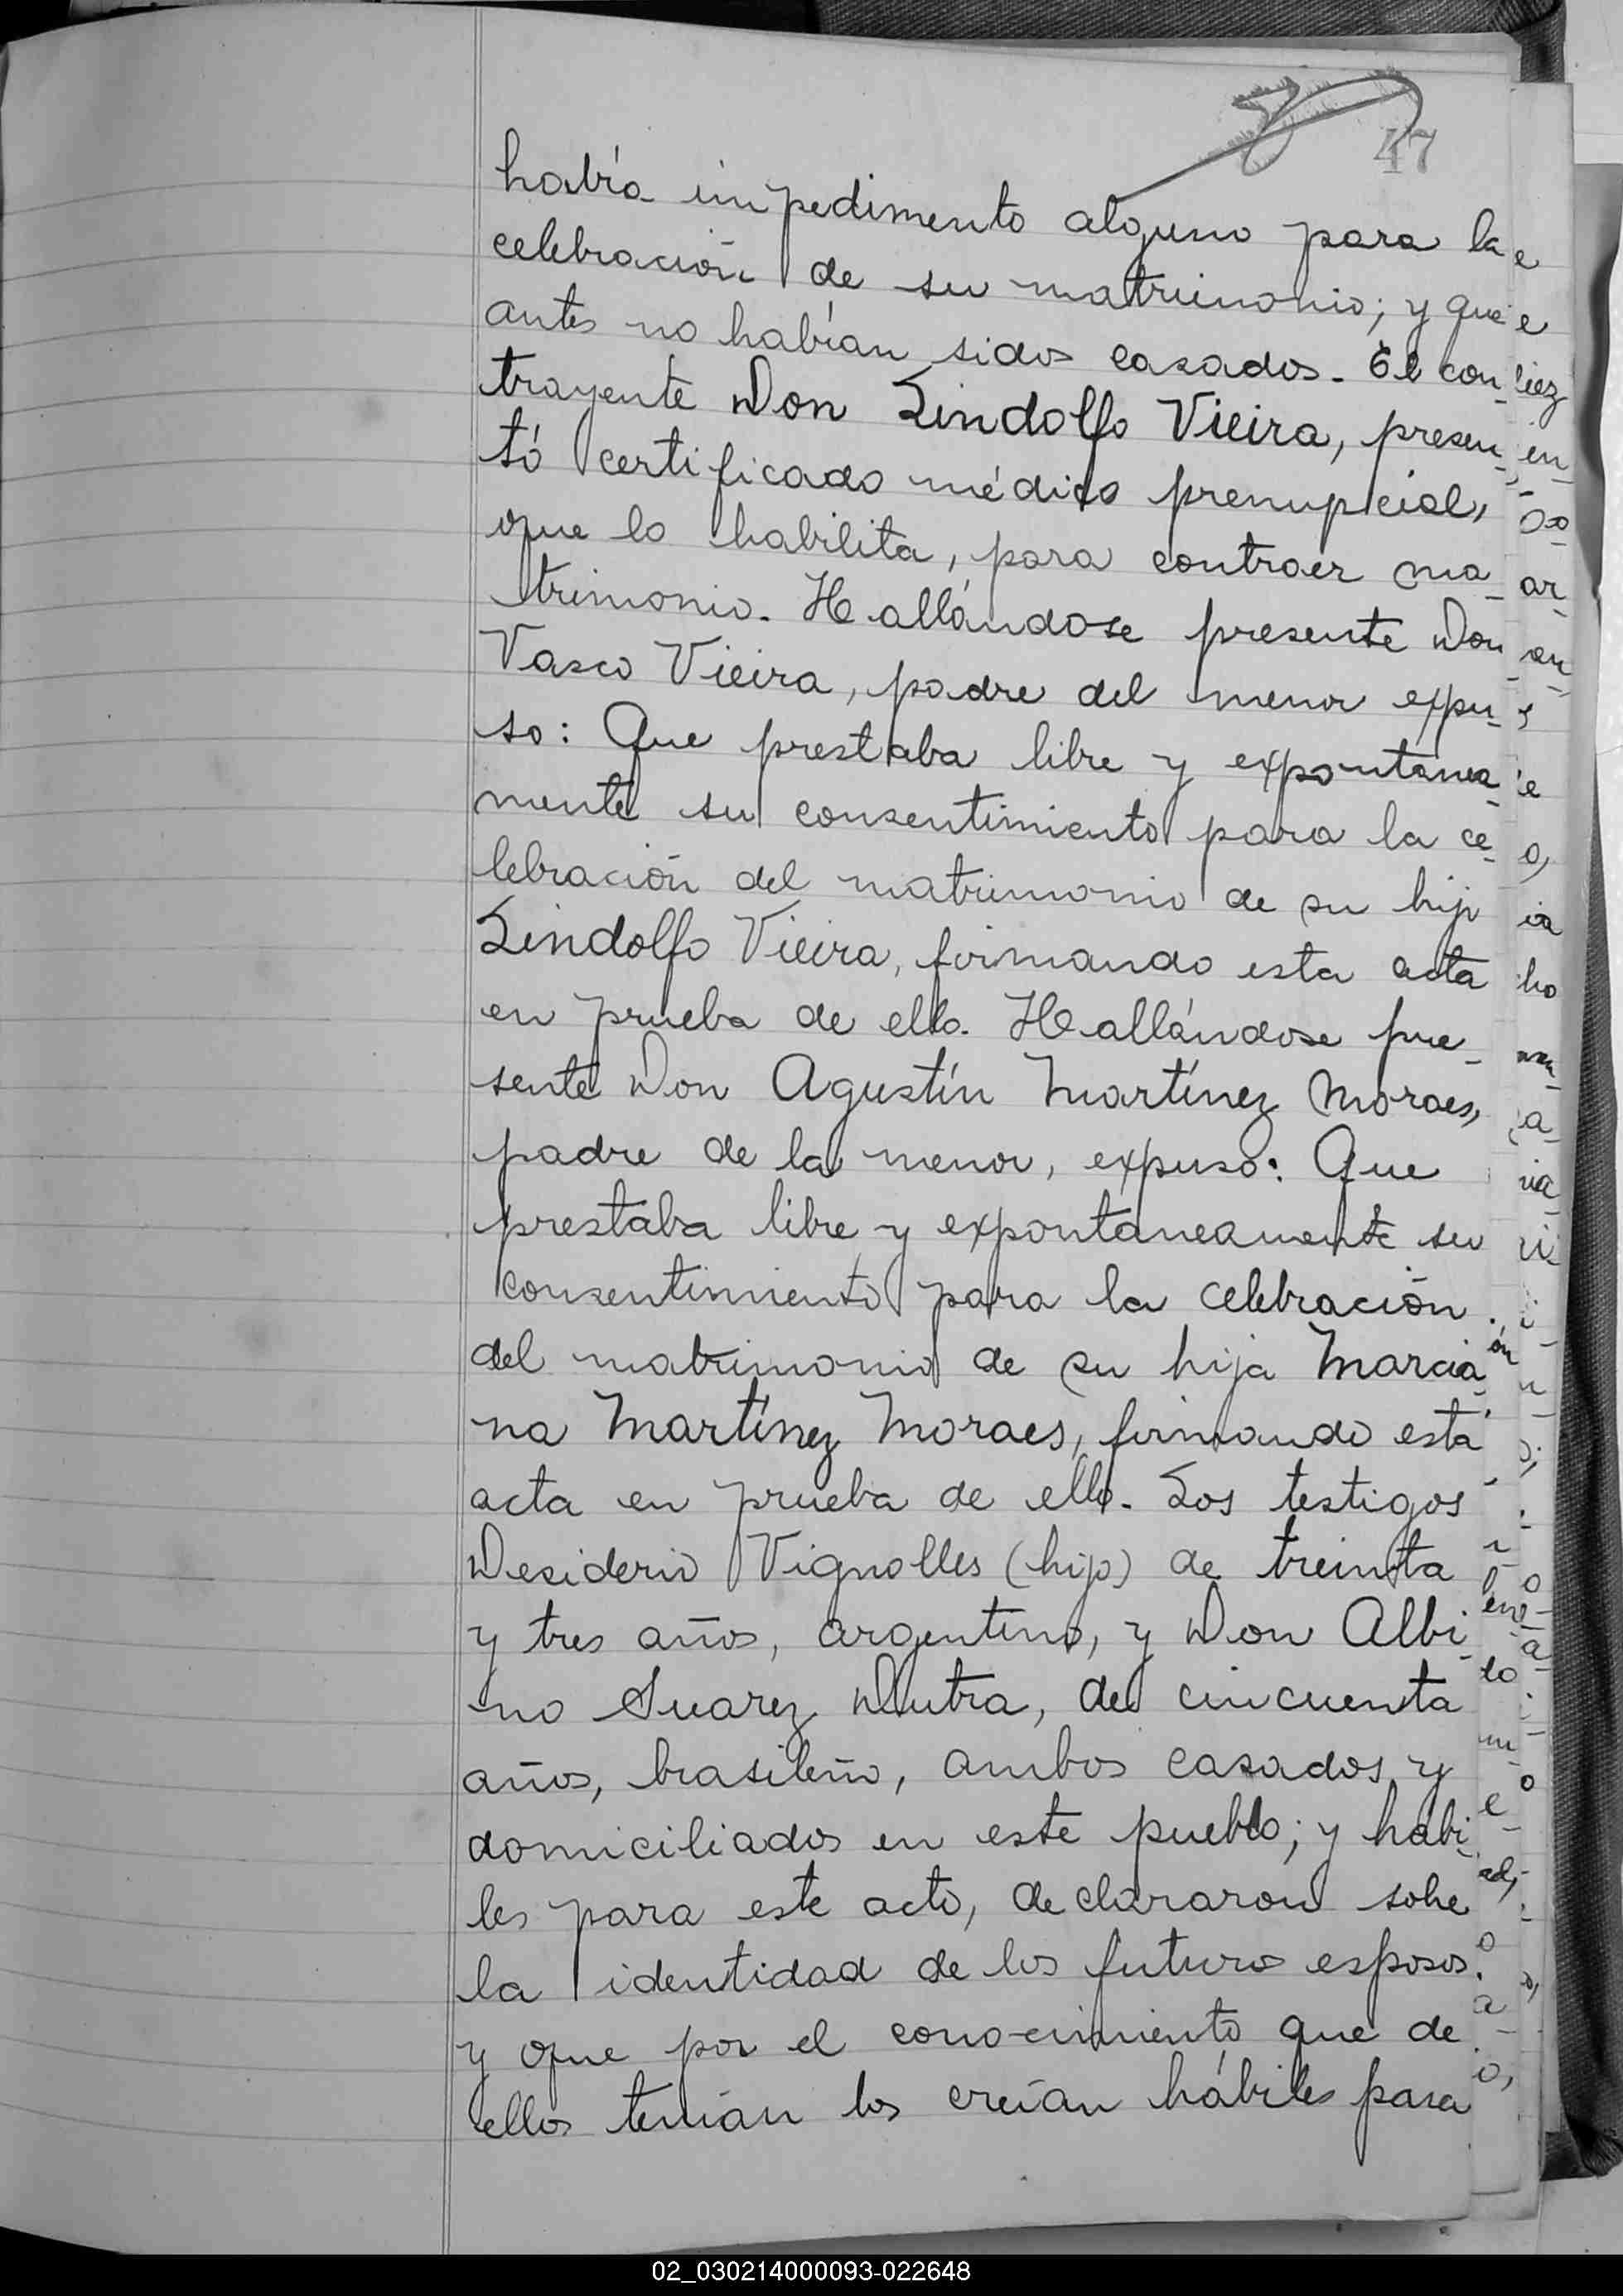 47
había impedimento alguno para la
celebración de su matrimonio; y que
antes no habían sidos casados. El con-
trayente Don Lindolfo Vieira, presen-
tó certificado médico prenupcial,
que lo habilita, para contraer ma-
trimonio. Hallándose presente Don
Vasco Vieira, padre del menor expu-
so: Que prestaba libre y expontánea-
mente su consentimiento para la ce-
lebración del matrimonio de su hijo
Lindolfo Vieira, firmando esta acta
en prueba de ello. Hallándose pre-
sente Don Agustín Martínez Moraes,
padre de la menor, expuso: Que
prestaba libre y expontaneamente su
consentimiento para la celebración
del matrimonio de su hija Marcia-
na Martínez Moraes, firmando esta
acta en prueba de ello. Los testigos
Desiderio Vignolles (hijo) de treinta
y tres años, argentino, y Don Albi-
no Suarez Dutra, de cincuenta
años, brasileño, ambos casados, y
domiciliados en este pueblo; y hábi-
les para este acto, declararon sobre
la identidad de los futuros esposos.
y que por el conocimiento que de
ellos tenían los creían hábiles para
02_030214000093-022648